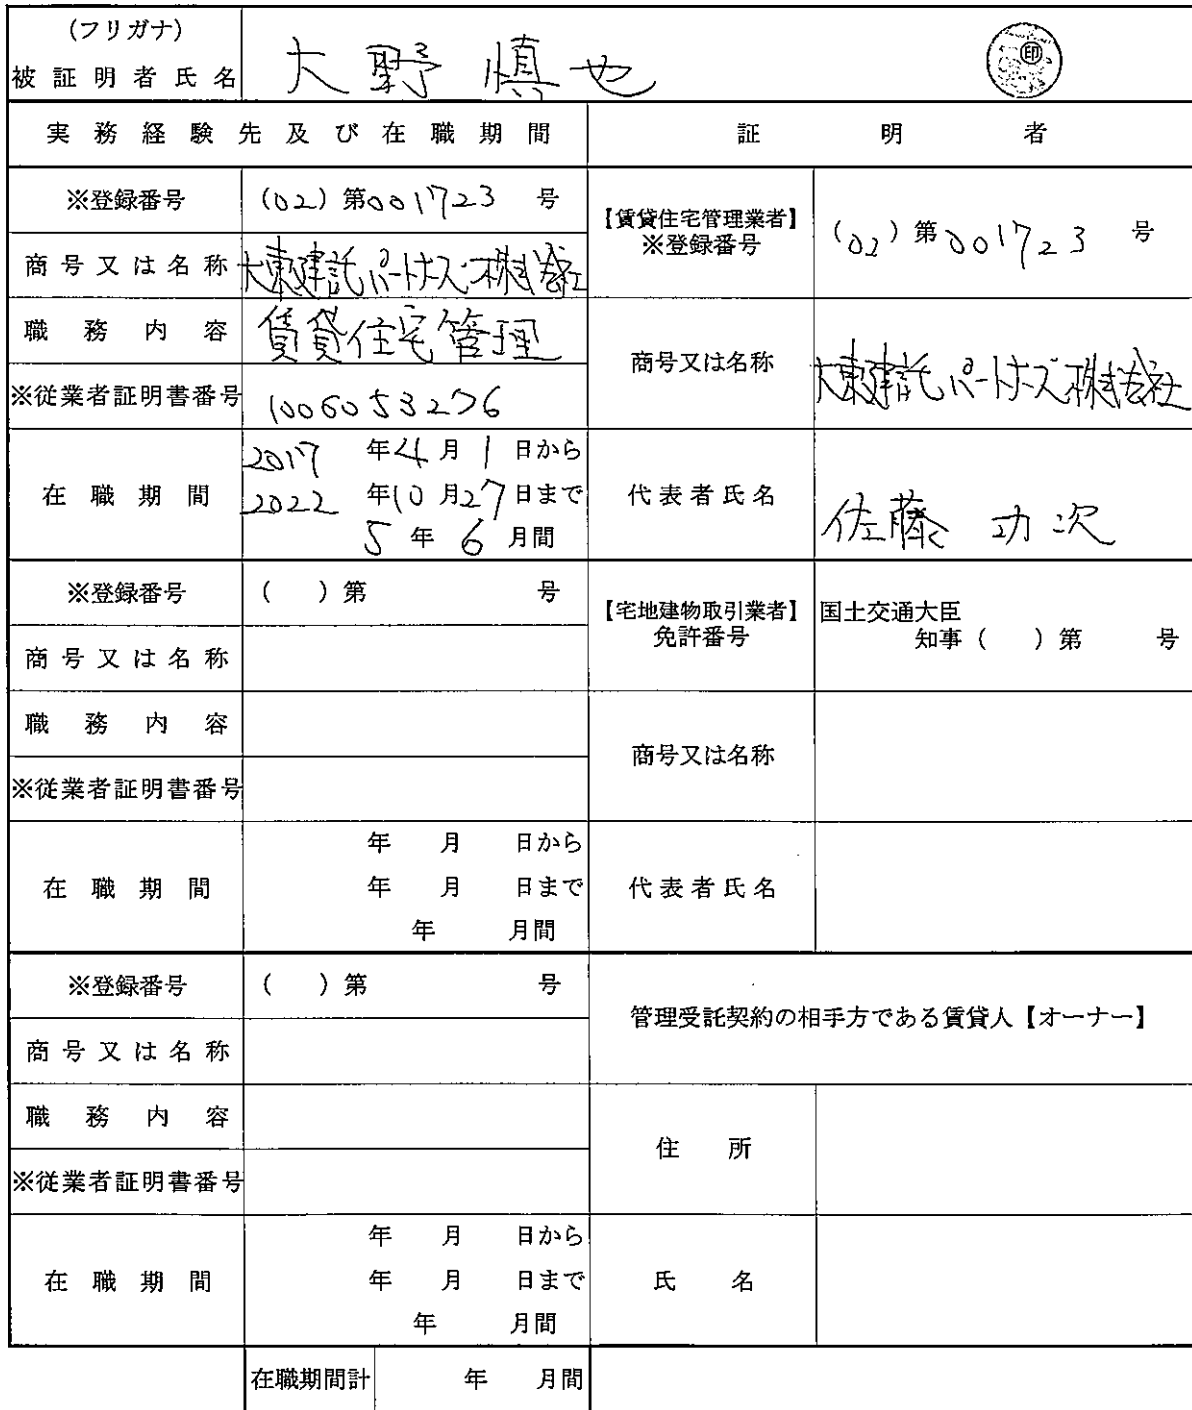 (フリガナ)
被証明者氏名 大野慎也 印
実務経験先及び在職期間 証明者
※登録番号 (02)第001723号 【賃貸住宅管理業者】※登録番号 (02)第001723号
商号又は名称 大東建託パートナーズ株式会社
職務内容 賃貸住宅管理 商号又は名称 大東建託パートナーズ株式会社
※従業者証明書番号 1006053276
在職期間 2017年4月1日から
2022年10月27日まで 代表者氏名 佐藤功次
5年6月間
※登録番号 ( )第 号 【宅地建物取引業者】免許番号 国土交通大臣
知事( )第 号
商号又は名称
職務内容 商号又は名称
※従業者証明書番号
年 月 日から
在職期間 年 月 日まで 代表者氏名
年 月間
※登録番号 ( )第 号 管理受託契約の相手方である賃貸人【オーナー】
商号又は名称
職務内容 住所
※従業者証明書番号
年 月 日から
在職期間 年 月 日まで 氏名
年 月間
在職期間計 年 月間